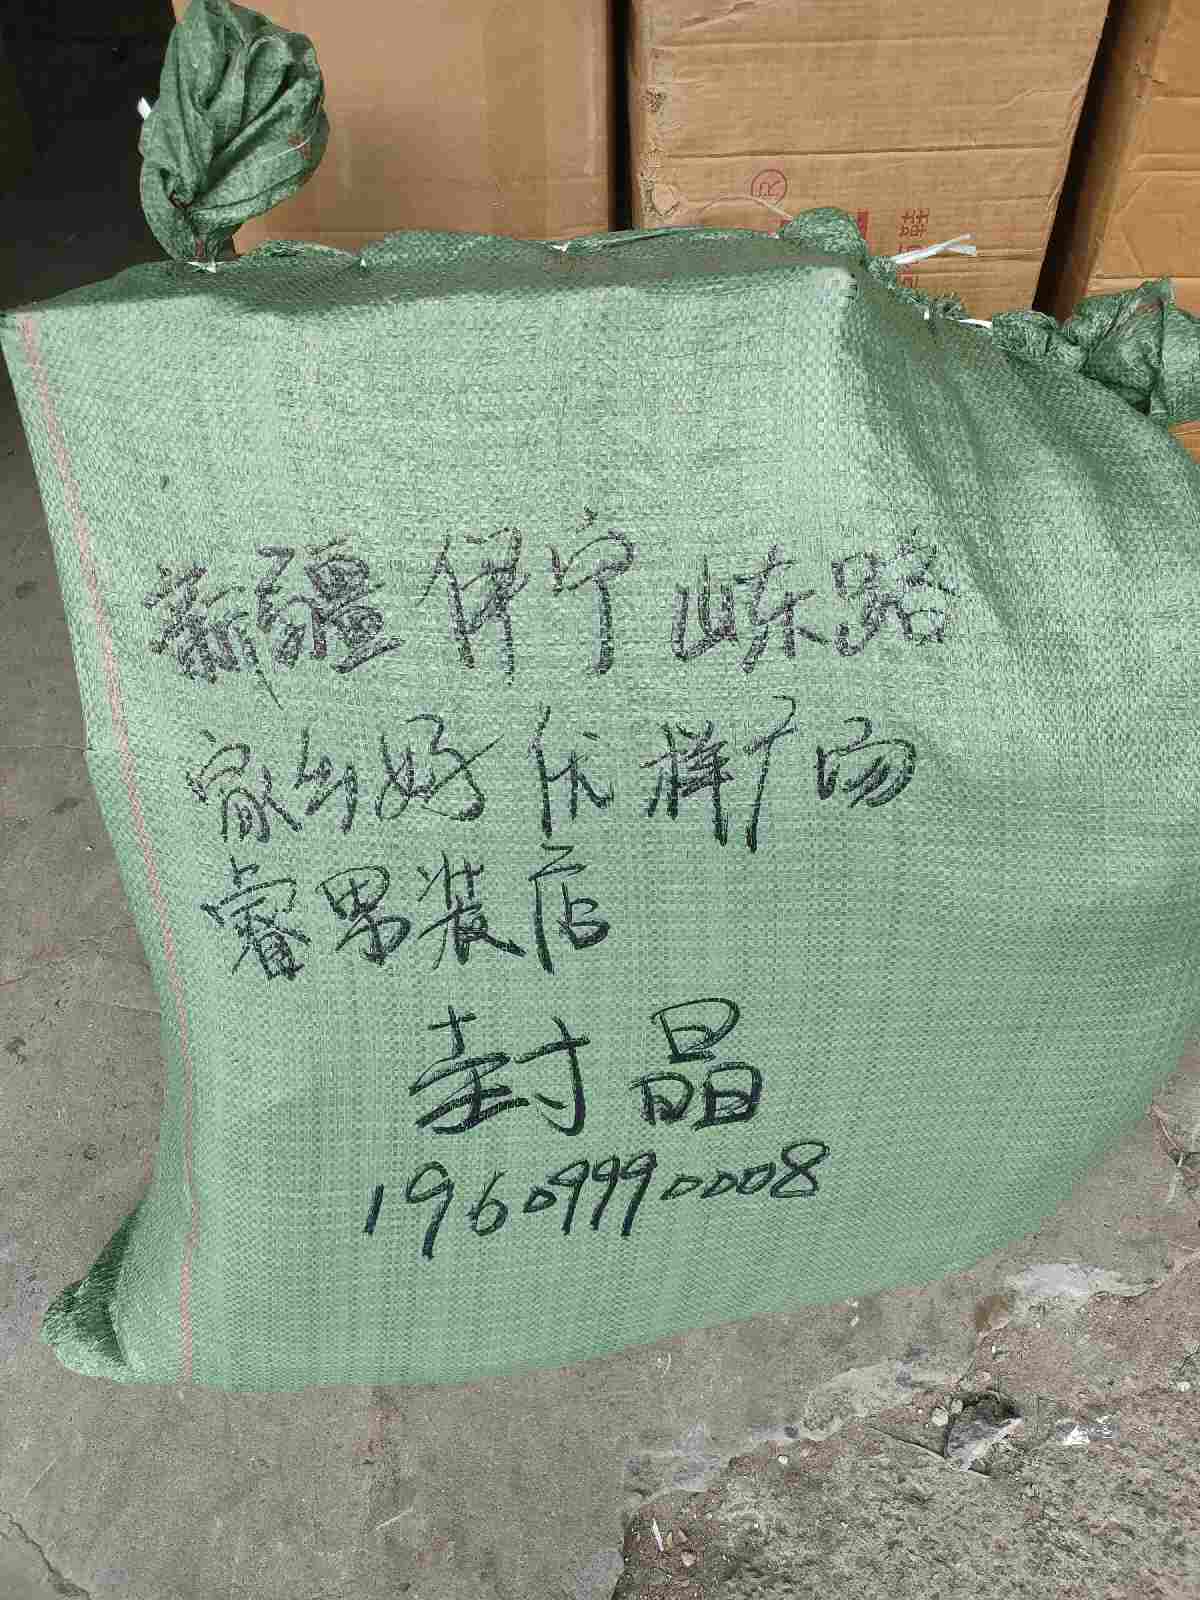 新疆伊宁山东路
家乡好优样广场
睿男装店
封晶
19609990008